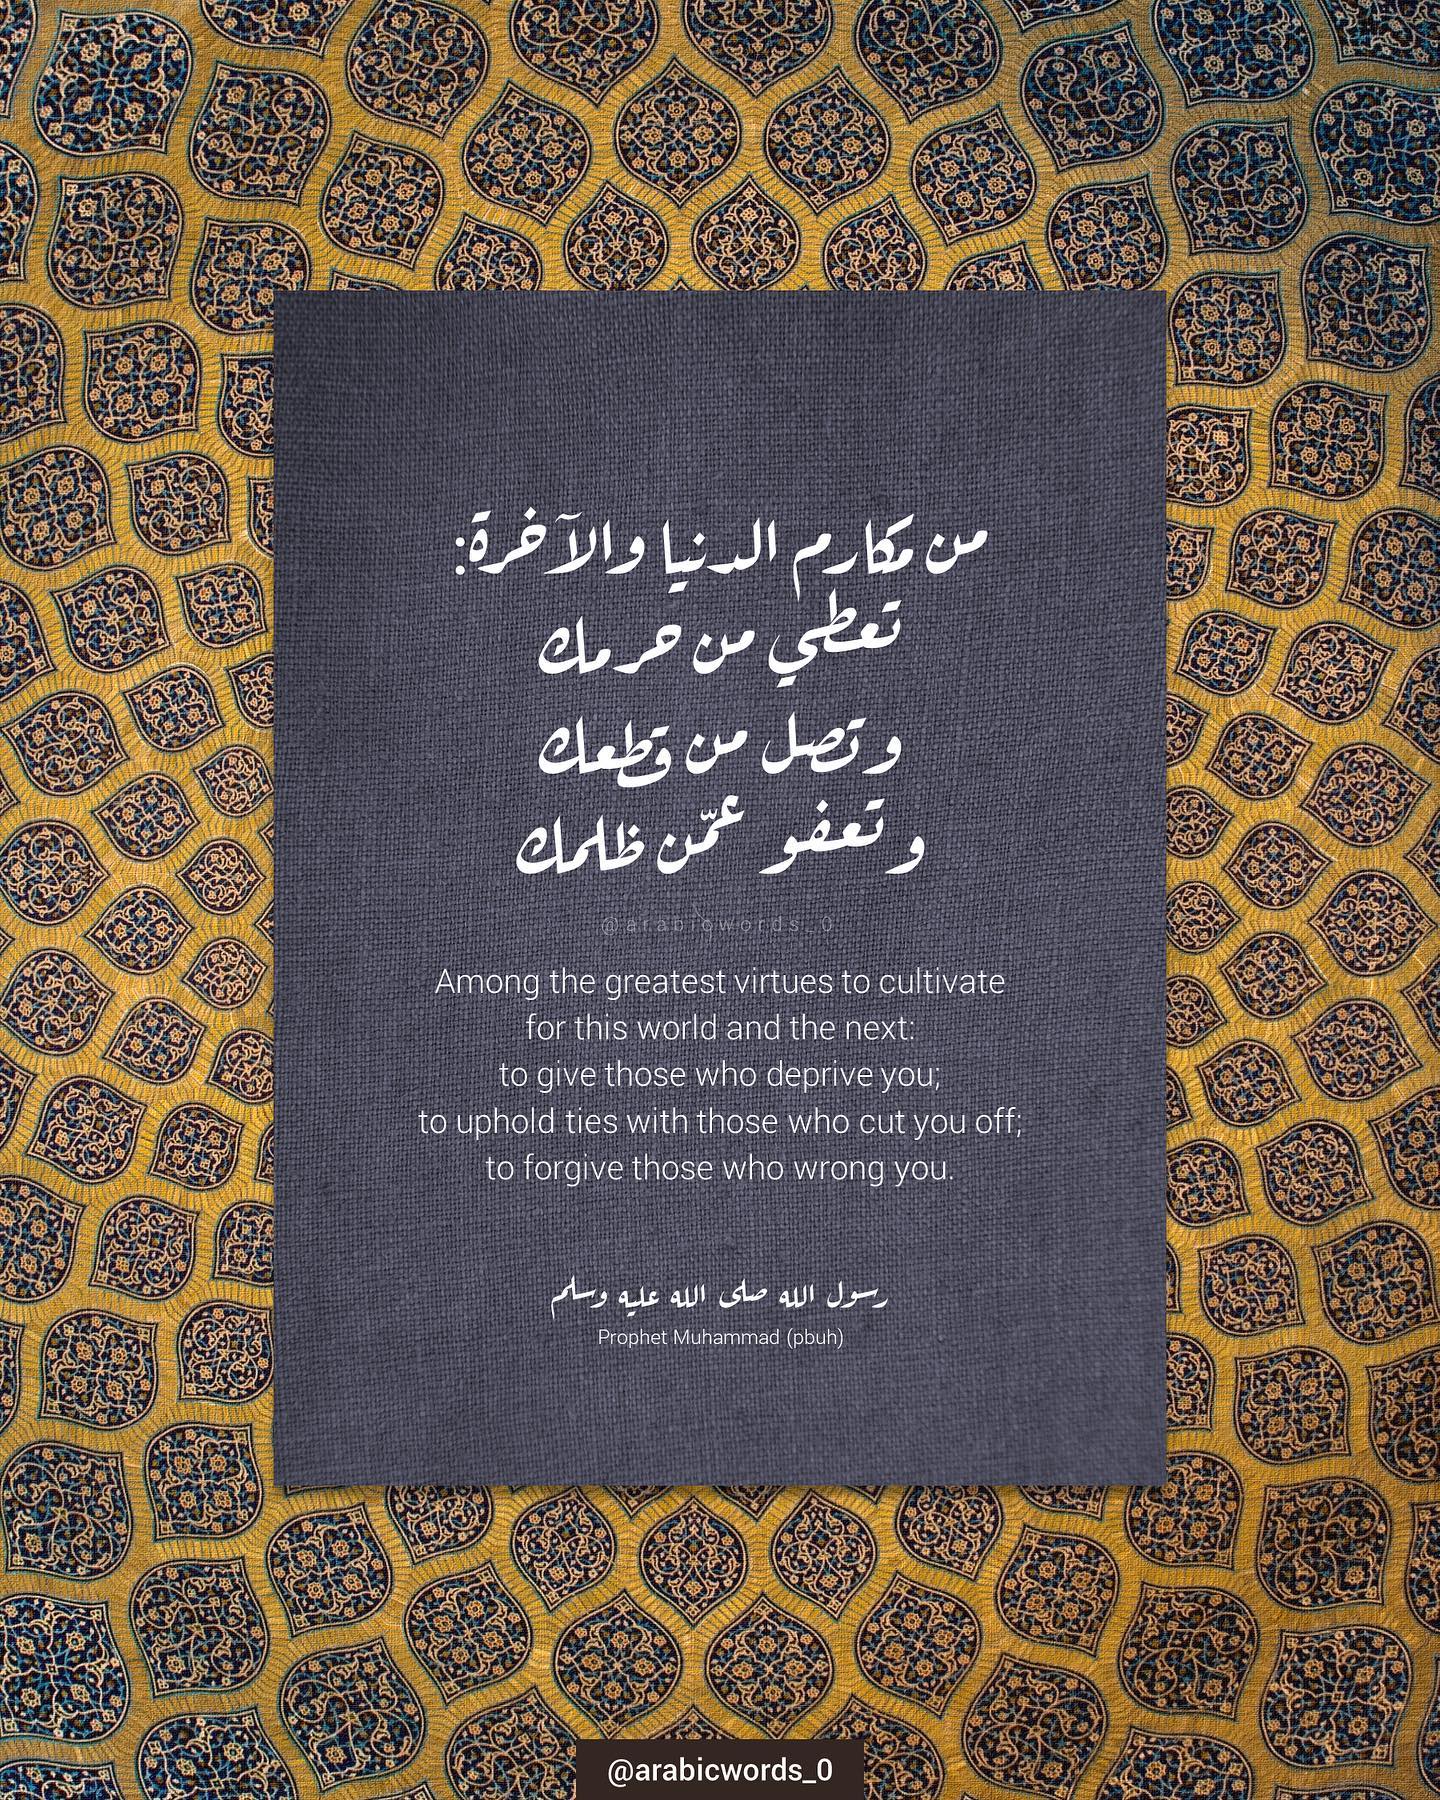 من مكارم الدنيا والآخرة:
تعطي من حرمك
وتصل من قطعك
وتعفو عمّن ظلمك
@arabicwords_0
Among the greatest virtues to cultivate
for this world and the next:
to give those who deprive you;
to uphold ties with those who cut you off;
to forgive those who wrong you.
رسول الله صلى الله عليه وسلم
Prophet Muhammad (pbuh)
@arabicwords_0